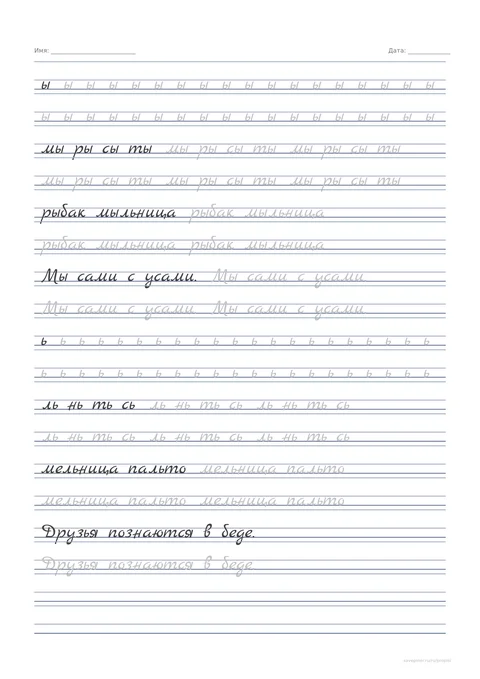 Имя: Дата:
ы ы ы ы ы ы ы ы ы ы ы ы ы ы ы ы ы ы
ы ы ы ы ы ы ы ы ы ы ы ы ы ы ы ы ы ы
мы ры сы ты мы ры сы ты мы ры сы ты
мы ры сы ты мы ры сы ты мы ры сы ты
рыбак мыльница рыбак мыльница
рыбак мыльница рыбак мыльница
Мы сами с усами. Мы сами с усами
Мы сами с усами Мы сами с усами
ь ь ь ь ь ь ь ь ь ь ь ь ь ь ь ь ь ь ь ь ь
ь ь ь ь ь ь ь ь ь ь ь ь ь ь ь ь ь ь ь ь ь
ль нь ть сь ль нь ть сь ль нь ть сь
ль нь ть сь ль нь ть сь ль нь ть сь
мельница пальто мельница пальто
мельница пальто мельница пальто
Друзья познаются в беде.
Друзья познаются в беде